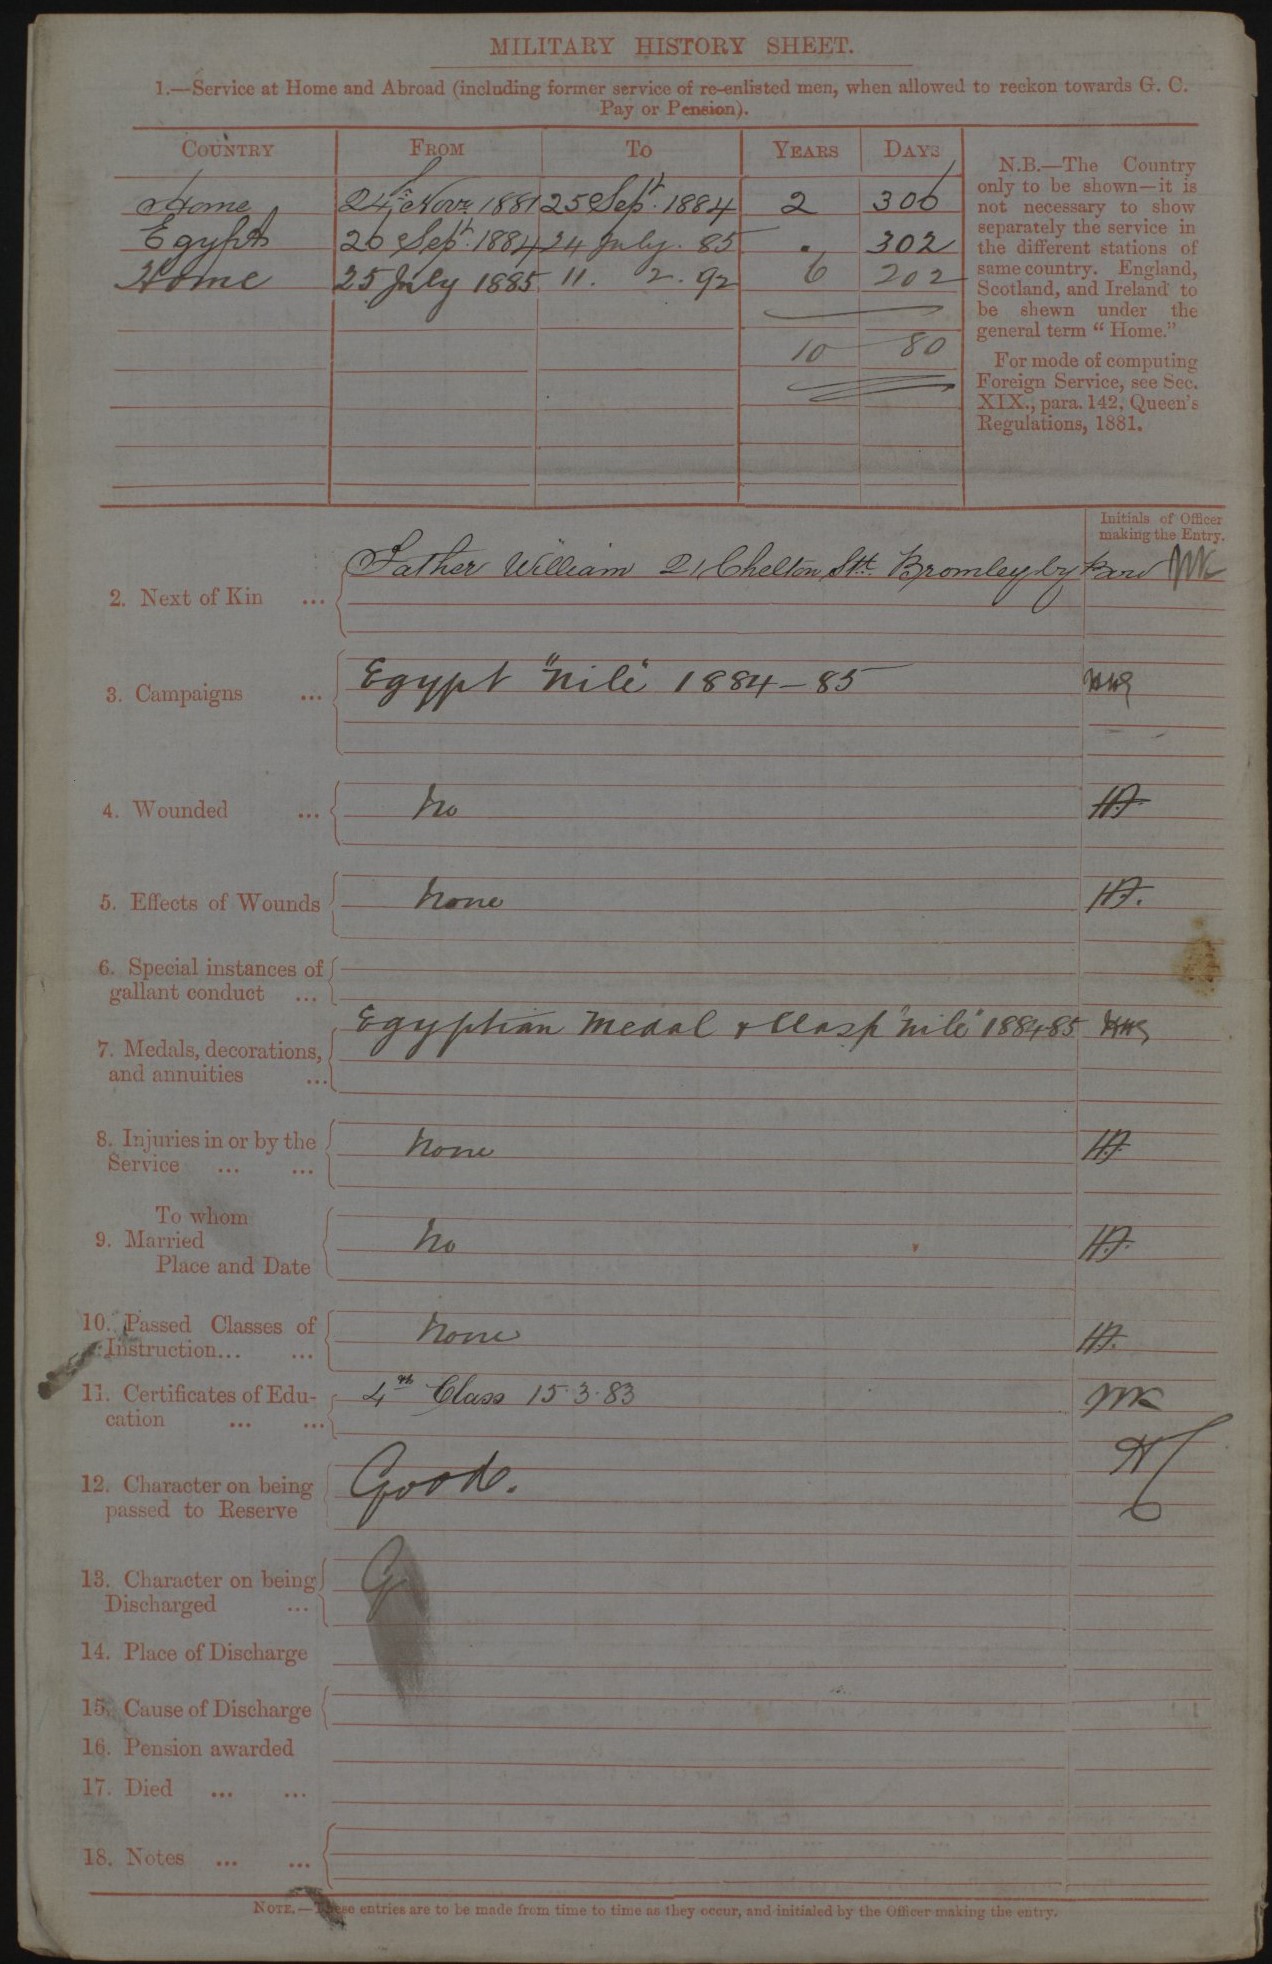 MILITARY HISTORY SHEET.
1.—Service at Home and Abroad (including former service of re-enlisted men, when allowed to reckon towards G. C.
Pay or Pension).
COUNTRY FROM TO YEARS DAYS
Home 24th Novr. 1881 25 Sept. 1884 2 306
Egypt 26 Sept. 1884 24 July. 85 . 302
Home 25 July 1885 11. 2. 92 6 202
10 80
N.B.—The Country
only to be shown—it is
not necessary to show
separately the service in
the different stations of
same country. England,
Scotland, and Ireland to
be shewn under the
general term “Home.”
For mode of computing
Foreign Service, see Sec.
XIX., para. 142, Queen's
Regulations, 1881.
Initials of Officer
making the Entry.
Father William 21 Chelton Stt. Bromley by Bow
2. Next of Kin ...
3. Campaigns ... Egypt "Nile" 1884–85
4. Wounded ... No H.F.
5. Effects of Wounds None H.F.
6. Special instances of
gallant conduct ...
Egyptian Medal & Clasp "Nile" 1884-85
7. Medals, decorations,
and annuities ...
8. Injuries in or by the
Service ... ... None H.F.
To whom
9. Married No H.F.
Place and Date
10. Passed Classes of
Instruction... ... None H.F.
11. Certificates of Edu-
cation ... ... 4th Class 15.3.83
12. Character on being
passed to Reserve Good.
13. Character on being
Discharged ... G
14. Place of Discharge
15. Cause of Discharge
16. Pension awarded
17. Died ... ...
18. Notes ... ...
NOTE.—These entries are to be made from time to time as they occur, and initialed by the Officer making the entry.